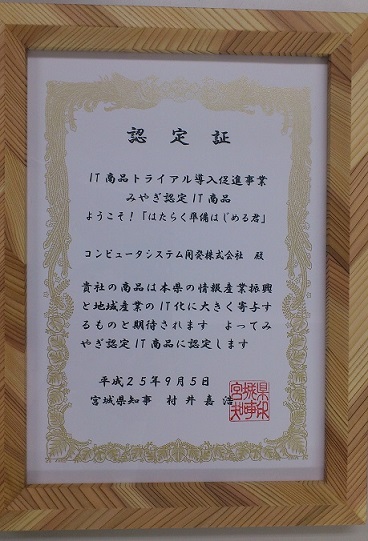 認定証
IT商品トライアル導入促進事業
みやぎ認定IT商品
ようこそ!「はたらく準備はじめる君」
コンピュータシステム開発株式会社 殿
貴社の商品は本県の情報産業振興
と地域産業のIT化に大きく寄与す
るものと期待されます よってみ
やぎ認定IT商品に認定します
平成25年9月5日
宮城県知事 村井嘉浩